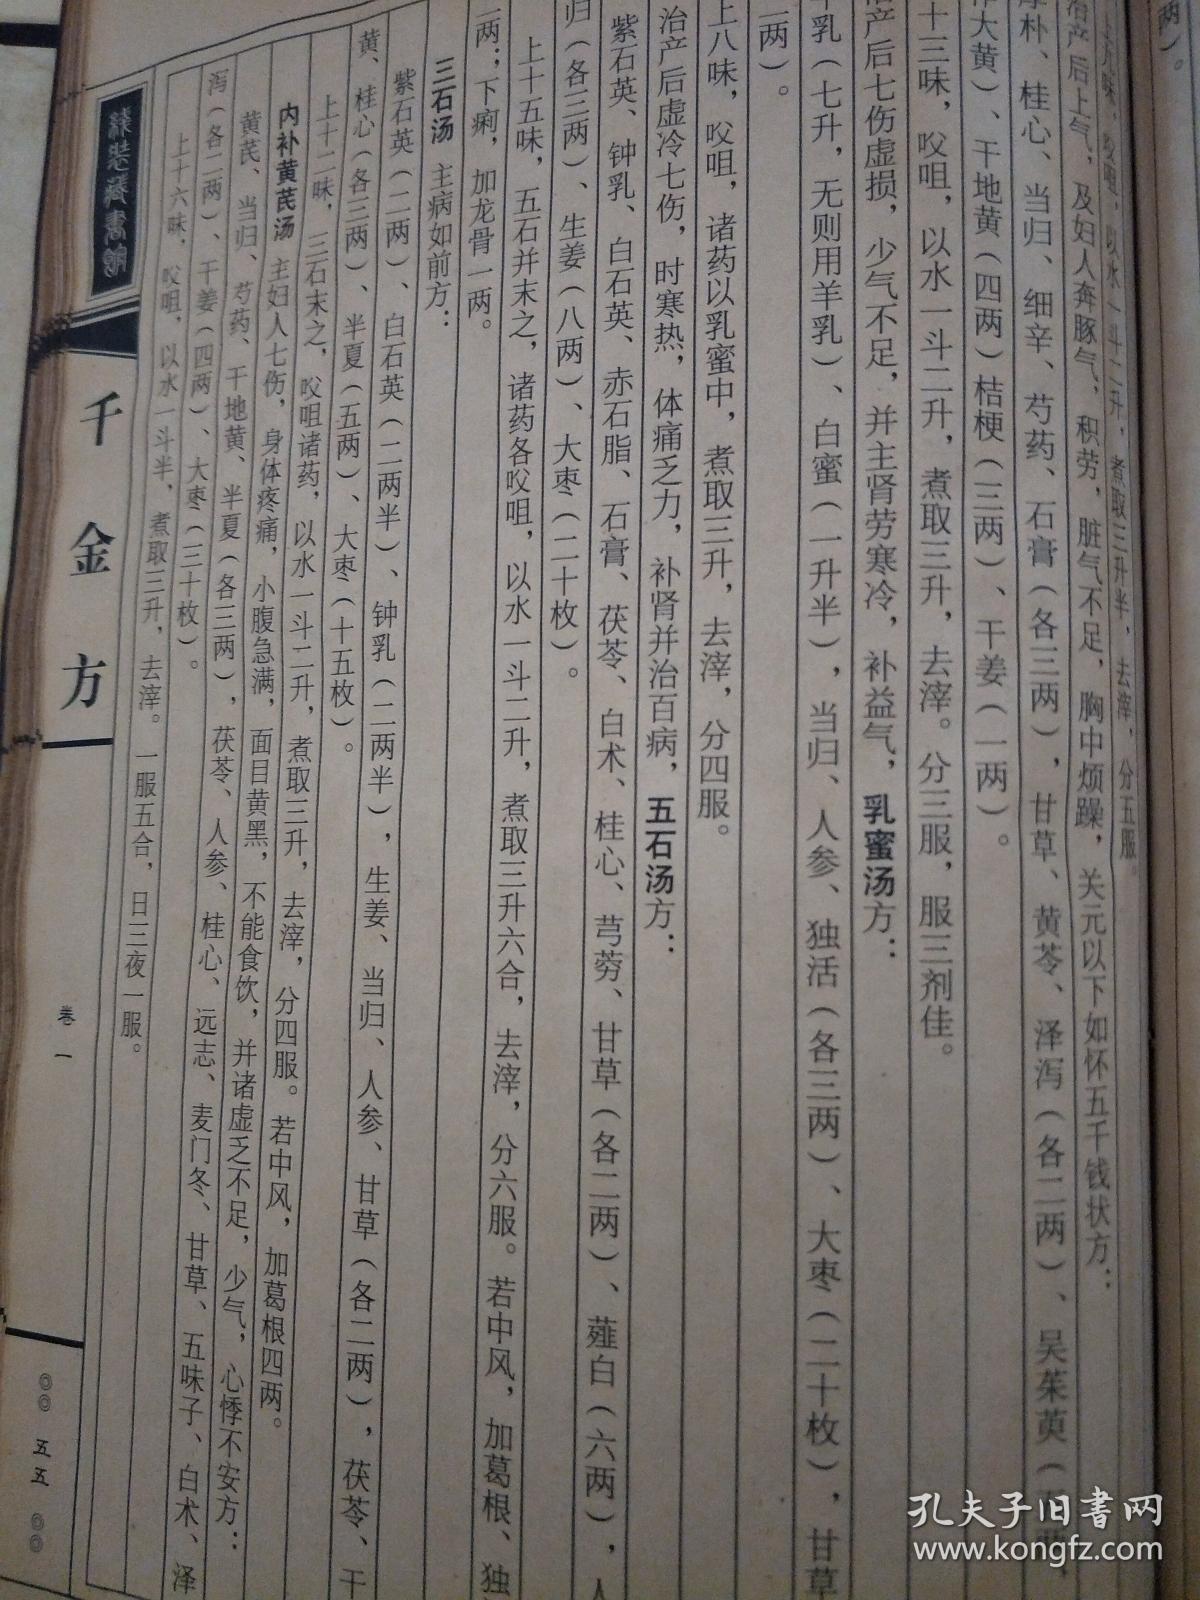 两）。
上九味，㕮咀，以水一斗二升，煮取三升半，去滓，分五服。
治产后上气，及妇人奔豚气，积劳，脏气不足，胸中烦躁，关元以下如怀五千钱状方：
厚朴、桂心、当归、细辛、芍药、石膏（各三两），甘草、黄芩、泽泻（各二两）、吴茱萸（
大黄）、干地黄（四两）桔梗（三两）、干姜（一两）。
十三味，㕮咀，以水一斗二升，煮取三升，去滓。分三服，服三剂佳。
治产后七伤虚损，少气不足，并主肾劳寒冷，补益气，乳蜜汤方：
乳（七升，无则用羊乳）、白蜜（一升半），当归、人参、独活（各三两）、大枣（二十枚），甘草
两）。
上八味，㕮咀，诸药以乳蜜中，煮取三升，去滓，分四服。
治产后虚冷七伤，时寒热，体痛乏力，补肾并治百病，五石汤方：
紫石英、钟乳、白石英、赤石脂、石膏、茯苓、白术、桂心、芎䓖、甘草（各二两）、薤白（六两），人
归（各三两）、生姜（八两）、大枣（二十枚）。
上十五味，五石并末之，诸药各㕮咀，以水一斗二升，煮取三升六合，去滓，分六服。若中风，加葛根、独
两；下痢，加龙骨一两。
三石汤 主病如前方：
紫石英（二两）、白石英（二两半）、钟乳（二两半），生姜、当归、人参、甘草（各二两），茯苓、干
黄、桂心（各三两）、半夏（五两）、大枣（十五枚）。
上十二味，三石末之，㕮咀诸药，以水一斗二升，煮取三升，去滓，分四服。若中风，加葛根四两。
内补黄芪汤 主妇人七伤，身体疼痛，小腹急满，面目黄黑，不能食饮，并诸虚乏不足，少气，心悸不安方：
黄芪、当归、芍药、干地黄、半夏（各三两），茯苓、人参、桂心、远志、麦门冬、甘草、五味子、白术、泽
泻（各二两）、干姜（四两）、大枣（三十枚）。
上十六味，㕮咀，以水一斗半，煮取三升，去滓。一服五合，日三夜一服。
千金方
卷一
◎◎ 五五 ◎◎
孔夫子旧书网
www.kongfz.com